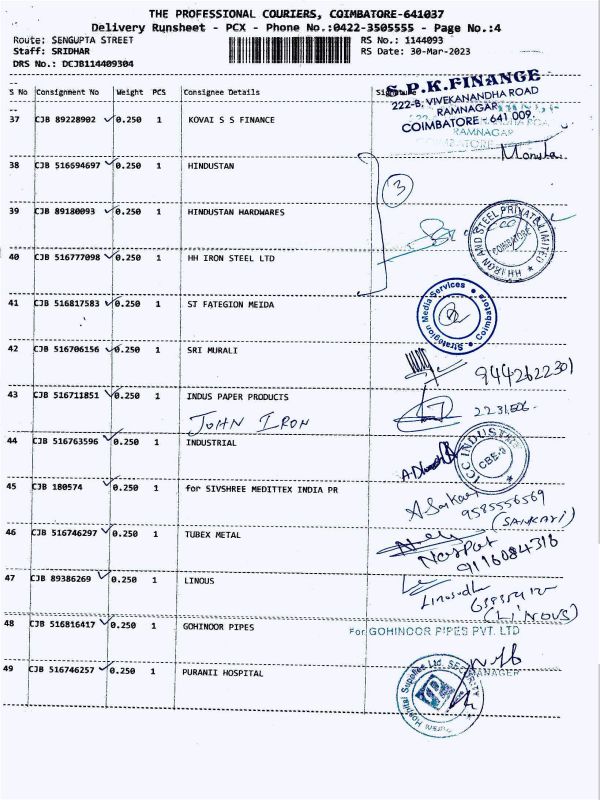 THE PROFESSIONAL COURIERS, COIMBATORE-641037
Delivery Runsheet - PCX - Phone No.:0422-3505555 - Page No.:4
Route: SENGUPTA STREET
RS No.: 1144093
Staff: SRIDHAR
RS Date: 30-Mar-2023
DRS No.: DCJB114409304
S No Consignment No Weight PCS Consignee Details
S.P.K.FINANCE
222-B, VIVEKANANDHA ROAD
RAMNAGAR
COIMBATORE - 641 009.
RAMNAGAR
COIMBATORE
37 CJB 89228902 0.250 1 KOVAI S S FINANCE
38 CJB 516694697 0.250 1 HINDUSTAN
3
39 CJB 89180093 0.250 1 HINDUSTAN HARDWARES
HH IRON AND STEEL PRIVATE LIMITED
COIMBATORE
40 CJB 516777098 0.250 1 HH IRON STEEL LTD
41 CJB 516817583 0.250 1 ST FATEGION MEIDA
Strategion Media Services
Coimbatore
42 CJB 516706156 0.250 1 SRI MURALI
9442622301
43 CJB 516711851 0.250 1 INDUS PAPER PRODUCTS
JOHN IRON
44 CJB 516763596 0.250 1 INDUSTRIAL
ICC INDUSTRI
CBE-9
45 CJB 180574 0.250 1 for SIVSHREE MEDITTEX INDIA PR
9585556569
(SANKARI)
46 CJB 516746297 0.250 1 TUBEX METAL
9116084316
47 CJB 89386269 0.250 1 LINOUS
(LINOUS)
48 CJB 516816417 0.250 1 GOHINOOR PIPES
For GOHINOOR PIPES PVT. LTD
MANAGER
49 CJB 516746257 0.250 1 PURANII HOSPITAL
Hospital Supplies Ltd. SECURITY